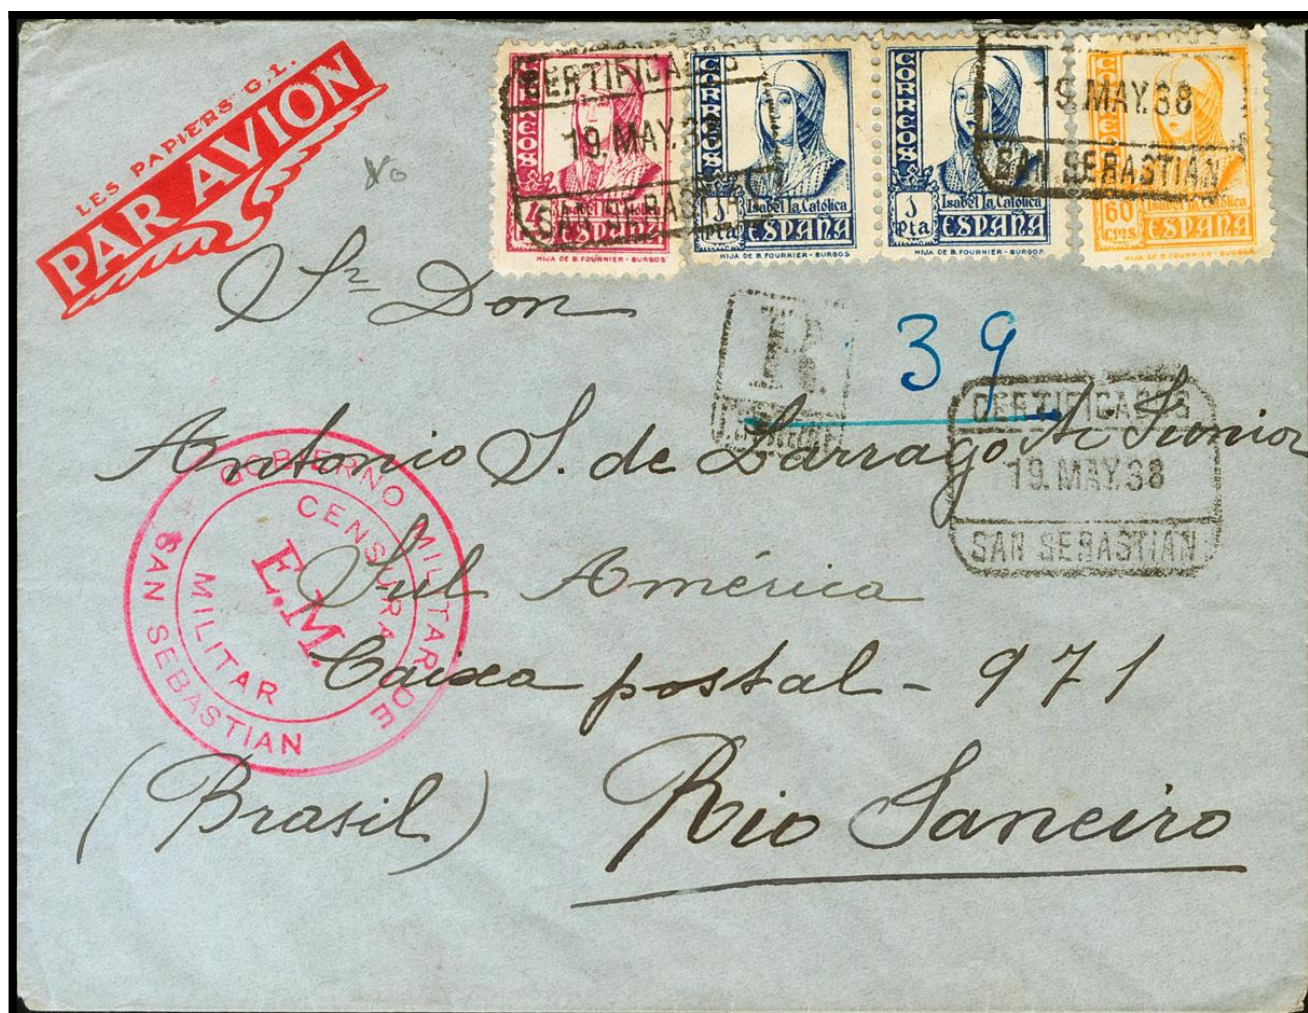 LES PAPIERS G.L.
PAR AVION
CERTIFICADOS
19.MAY.38
SAN SEBASTIAN
CORREOS
4
Isabel la Católica
ESPAÑA
HIJA DE B. FOURNIER - BURGOS
CORREOS
1 Pta
Isabel la Católica
ESPAÑA
HIJA DE B. FOURNIER - BURGOS
CORREOS
1 Pta
Isabel la Católica
ESPAÑA
HIJA DE B. FOURNIER - BURGOS
19.MAY.38
SAN SEBASTIAN
CORREOS
60 cms.
ESPAÑA
HIJA DE B. FOURNIER - BURGOS
Sr Don
R.
39
CERTIFICADOS
19.MAY.38
SAN SEBASTIAN
Antonio S. de Larragoiti Junior
GOBIERNO MILITAR DE
SAN SEBASTIAN
CENSURA
E.M.
MILITAR
Sul América
Caixa postal - 971
(Brasil) Rio Janeiro